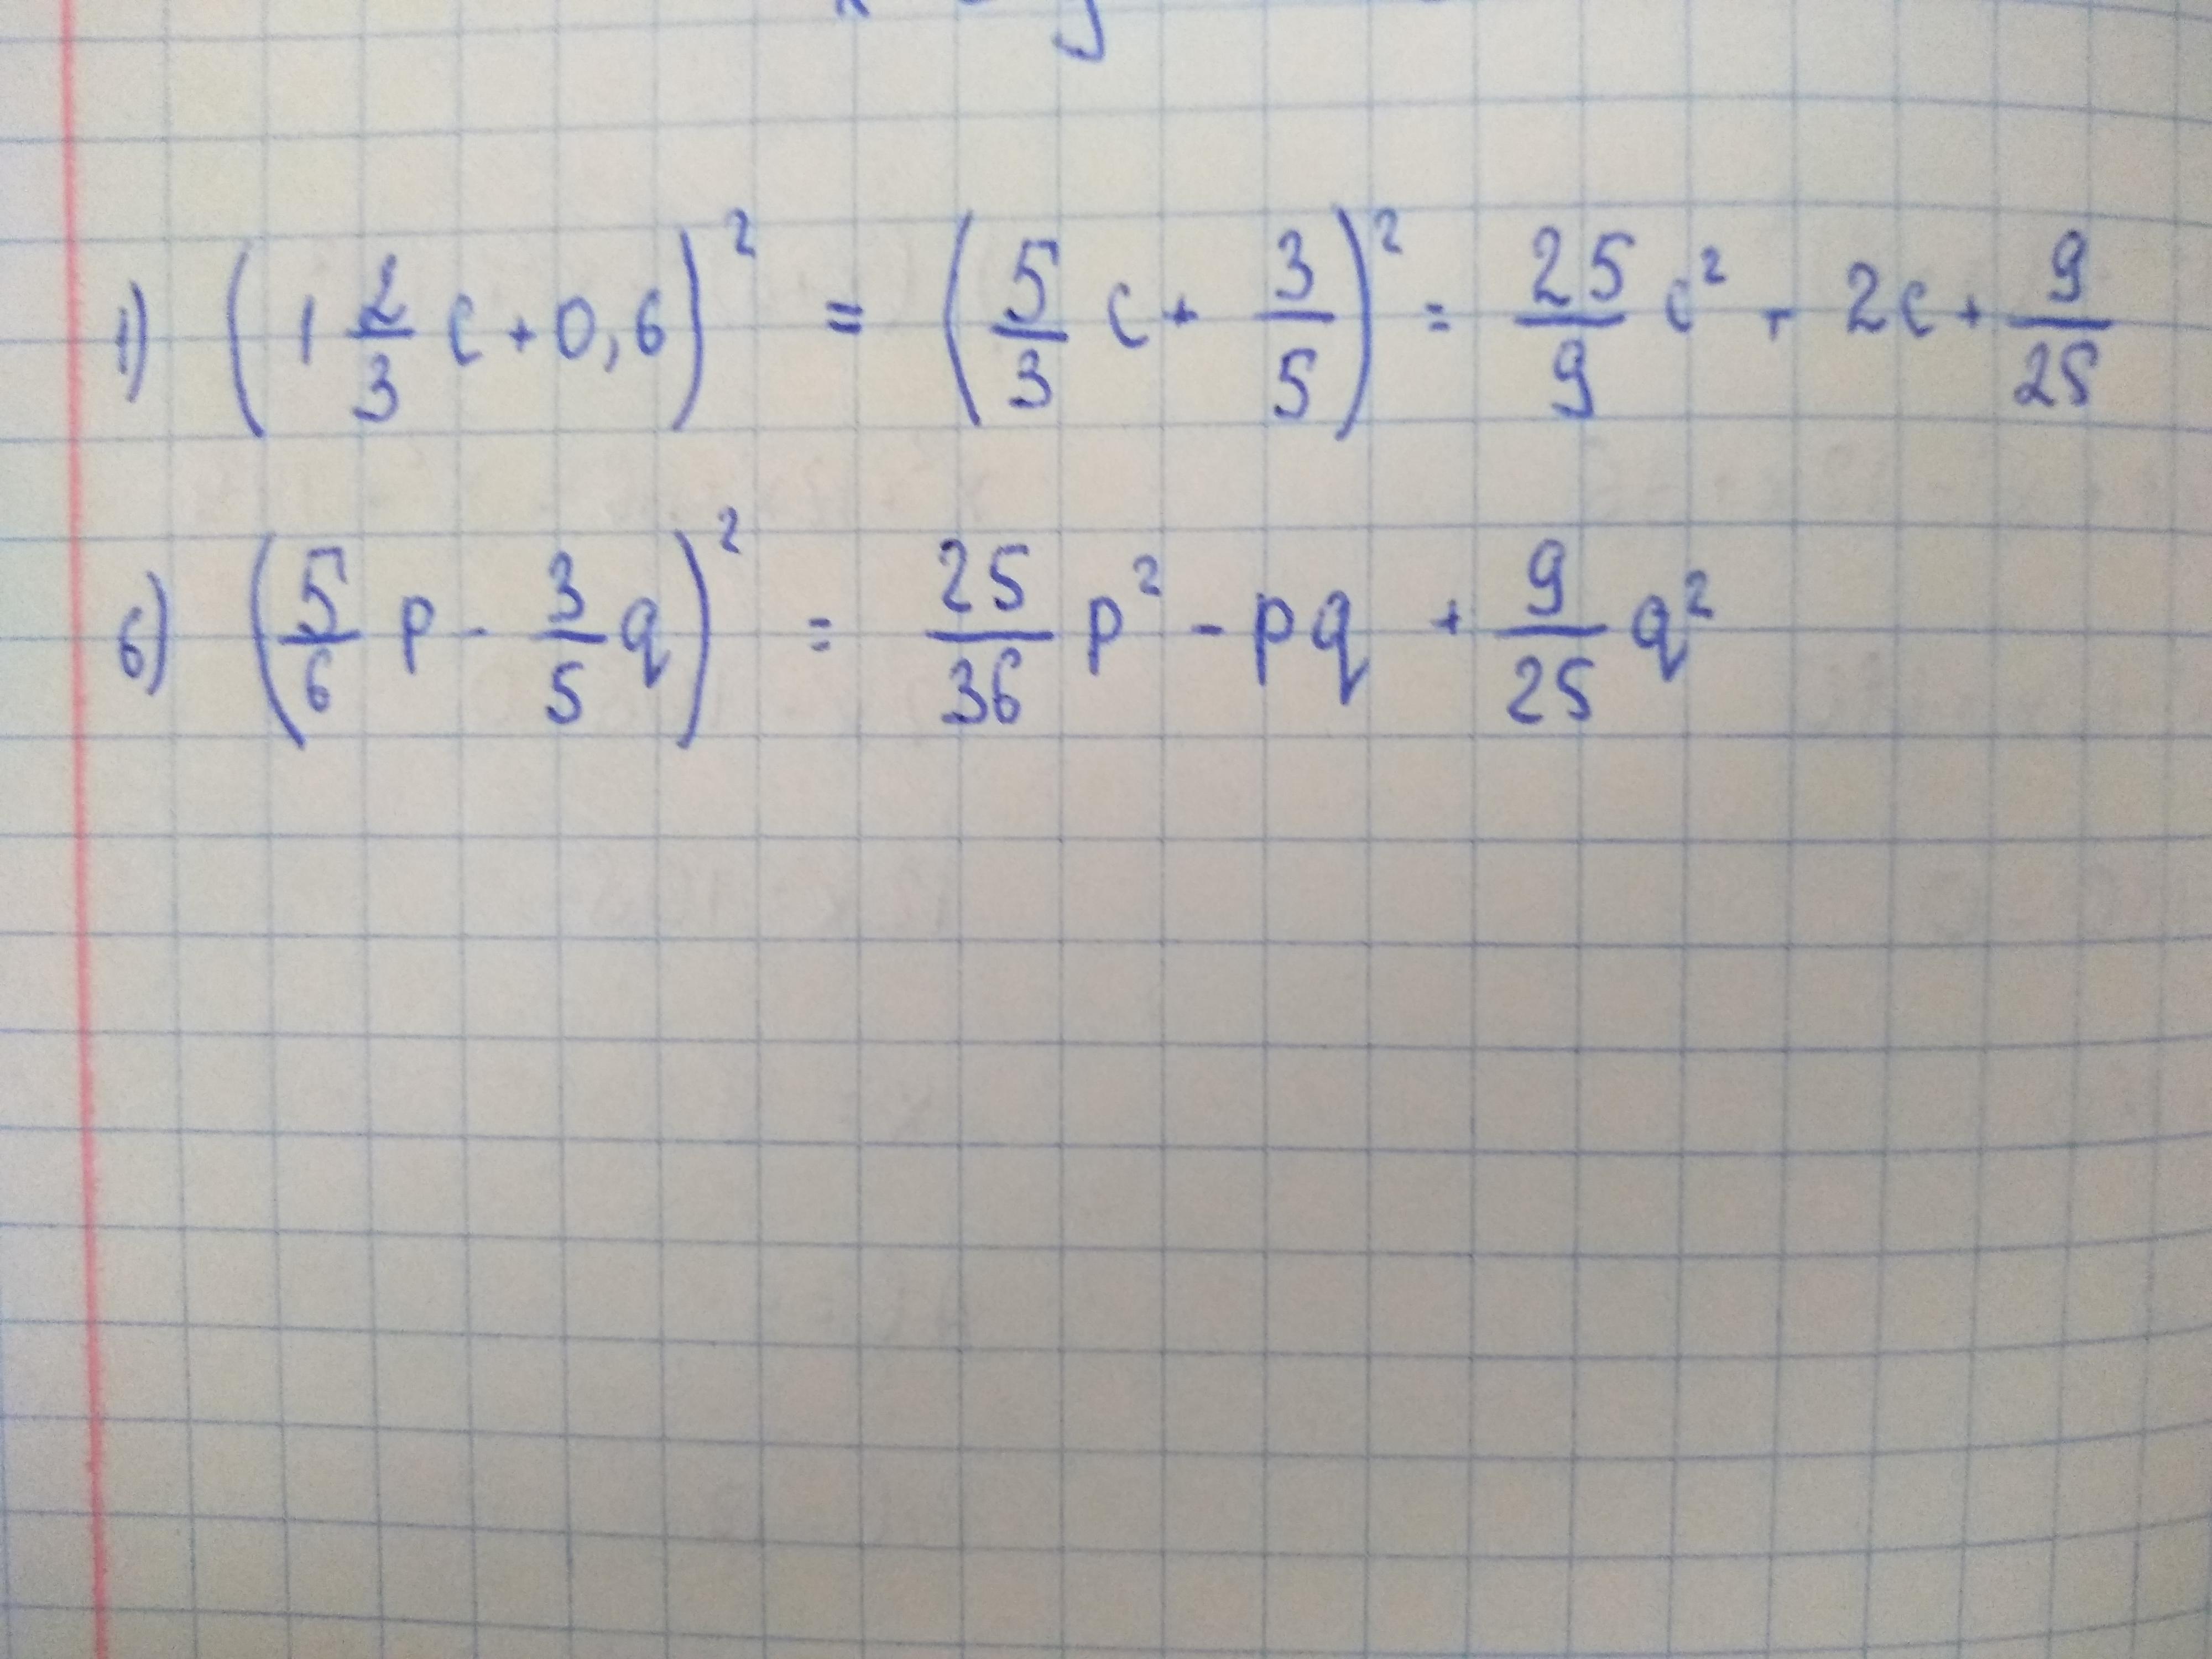 1) (1 2/3 c + 0,6)² = (5/3 c + 3/5)² = 25/9 c² + 2c + 9/25
6) (5/6 p - 3/5 q)² = 25/36 p² - pq + 9/25 q²